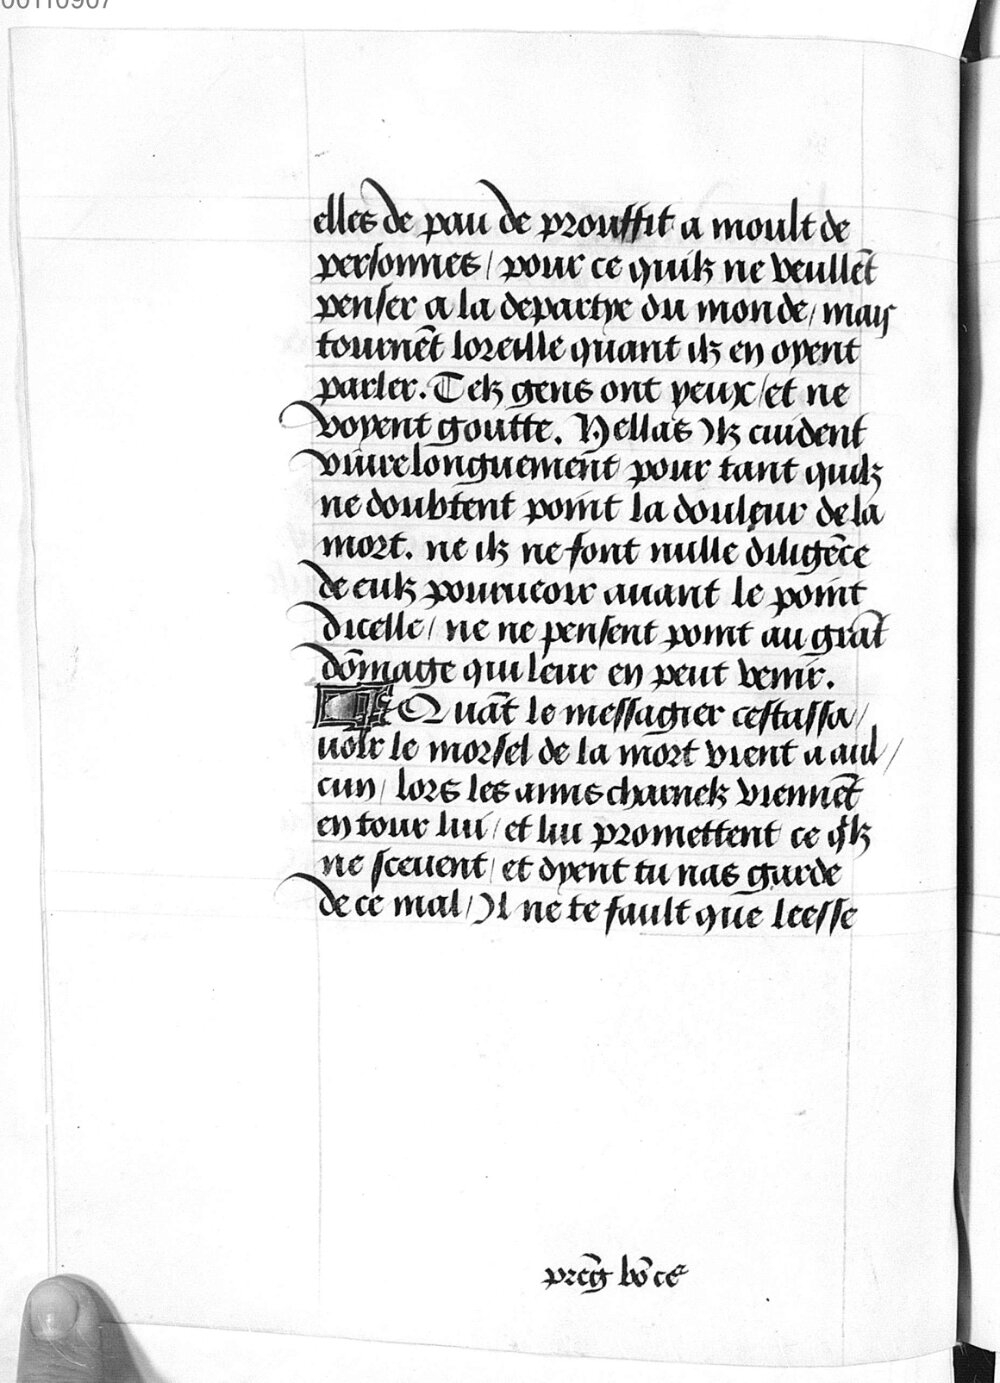 elles de pau de prouffit a moult de
personnes / pour ce quilz ne veullēt
penser a la departye du monde / mais
tournēt loreille quant ilz en oyent
parler. Telz gens ont yeux / et ne
voyent goutte. Hellas Ilz cuident
viure longuement pour tant quilz
ne doubtent point la douleur de la
mort. ne ilz ne font nulle diligēce
de eulz pourueoir auant le point
dicelle / ne ne pensent point au grāt
dōmage qui leur en peut venir.
Quāt le messagier cestassa /
uoir le morsel de la mort vient a aul /
cun / lors les amis charnelz viennēt
en tour lui / et lui promettent ce q̄lz
ne sceuent / et dyent tu nas garde
de ce mal / Il ne te fault que leesse